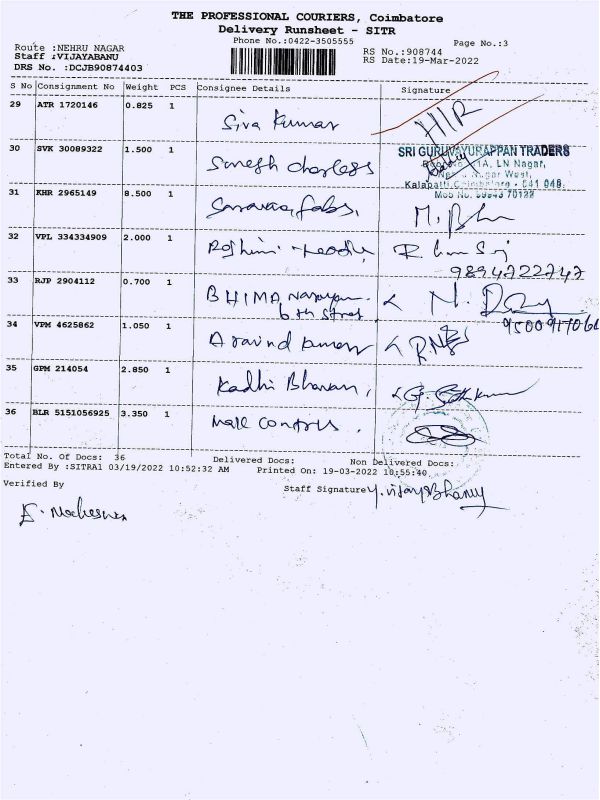 THE PROFESSIONAL COURIERS, Coimbatore
Delivery Runsheet - SITR
Phone No.:0422-3505555
Page No.:3
Route :NEHRU NAGAR
RS No.:908744
Staff :VIJAYABANU
RS Date:19-Mar-2022
DRS No. :DCJB90874403
S No Consignment No Weight PCS Consignee Details Signature
29 ATR 1720146 0.825 1 Siva Kumar
30 SVK 30089322 1.500 1 Suresh charless
SRI GURUVAYURAPPAN TRADERS
1A, LN Nagar,
Nagar West,
Kalapatti, Coimbatore - 641 048.
Mob No. 99943 70122
31 KHR 2965149 8.500 1
32 VPL 334334909 2.000 1
9894722247
33 RJP 2904112 0.700 1 BHIMA
6th Street
34 VPM 4625862 1.050 1 Aravind kumar
35 GPM 214054 2.850 1 Kadhi Bhavan,
36 BLR 5151056925 3.350 1
Total No. Of Docs: 36 Delivered Docs: Non Delivered Docs:
Entered By :SITRA1 03/19/2022 10:52:32 AM Printed On: 19-03-2022 10:55:40
Verified By Staff Signature